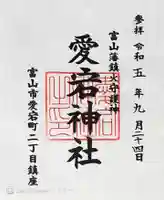 参拝 令和五年九月二十四日
富山藩鎮火守護神
愛宕神社
富山市愛宕町二丁目鎮座